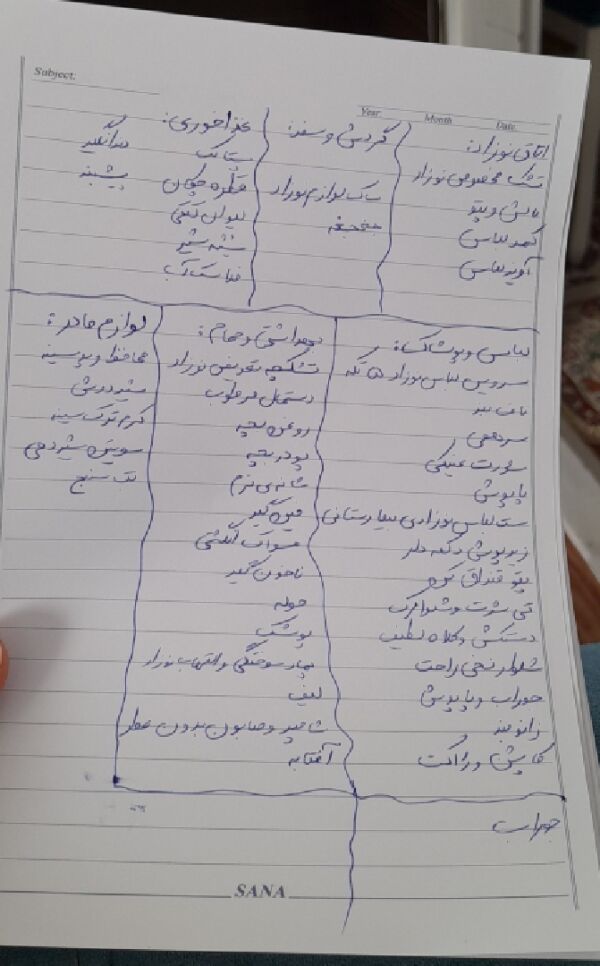 Subject:
Year Month Date
اتاق نوزاد:
تشک مخصوص نوزاد
بالش و پتو
کمد لباس
آویز لباس
گردش و سفر:
ساک لوازم نوزاد
جغجغه
غذاخوری:
پستانک
قطره چکان
لیوان
شیشه شیر
فلاسک آب
پیشبند
لباس و پوشاک:
سرویس لباس نوزاد ۵ تکه
ناف بند
سرهمی
شورت عینکی
پاپوش
ست لباس نوزادی بیمارستانی
زیرپوش دکمه دار
پتو قنداق کن
تی شرت و شلوارک
دستکش و کلاه لطیف
شلوار نخی راحت
جوراب و پاپوش
زانو بند
کاپشن و ژاکت
بهداشتی و حمام:
تشکچه تعویض نوزاد
دستمال مرطوب
روغن بچه
پودر بچه
شانه ی نرم
مسواک انگشتی
ناخن گیر
حوله
پوشک
پماد سوختگی و التهاب نوزاد
لیف
شامپو و صابون بدون عطر
آفتابه
لوازم مادر:
محافظ و پد سینه
شیردوش
کرم ترک سینه
سوتین شیردهی
تب سنج
جوراب
SANA